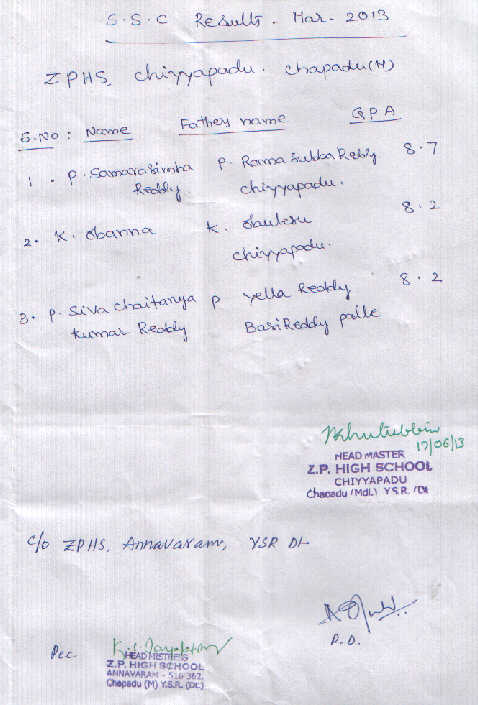 S.S.C Results. Mar. 2013
ZPHS, Chiyyapadu. Chapadu(M)
S.NO: Name Father name GPA
1. P. Samarasimha Reddy P. Rama Subba Reddy Chiyyapadu. 8.7
2. K. Obanna K. Obulesu Chiyyapadu. 8.2
3. P. Siva Chaitanya Kumar Reddy P Yella Reddy BasiReddy palle 8.2
17/06/13
HEAD MASTER
Z.P. HIGH SCHOOL
CHIYYAPADU
Chapadu (Mdl.) Y.S.R. (Dt)
C/o ZPHS, Annavaram, YSR Dt
HEAD MISTRESS
Z.P. HIGH SCHOOL
ANNAVARAM - 516 362.
Chapadu (M) Y.S.R. (Dt.)